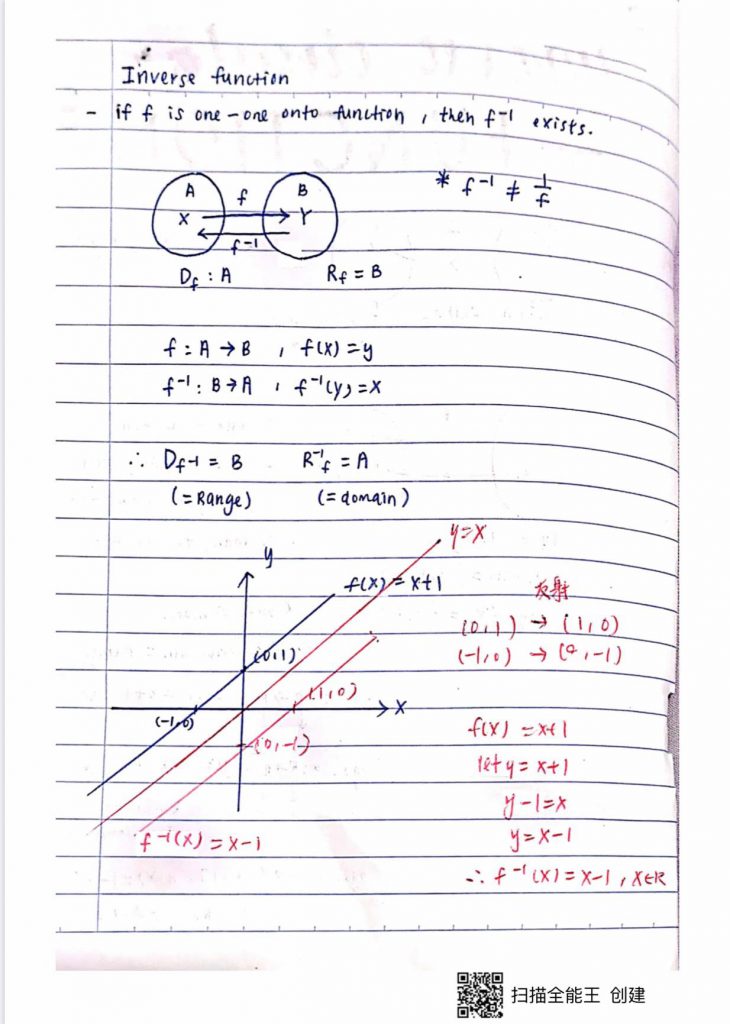 Inverse function
- if f is one-one onto function, then f⁻¹ exists.
A f B * f⁻¹ ≠ 1/f
X Y
f⁻¹
Df : A Rf = B
f : A → B , f(x) = y
f⁻¹ : B → A , f⁻¹(y) = x
∴ Df⁻¹ = B R⁻¹f = A
(= Range) (= domain)
y = x
y
f(x) = x+1
反射
(0,1) → (1,0)
(-1,0) → (0,-1)
(0,1)
(1,0)
(-1,0)
x
(0,-1)
f⁻¹(x) = x-1
f(x) = x+1
let y = x+1
y-1 = x
y = x-1
∴ f⁻¹(x) = x-1, x∈R
扫描全能王 创建